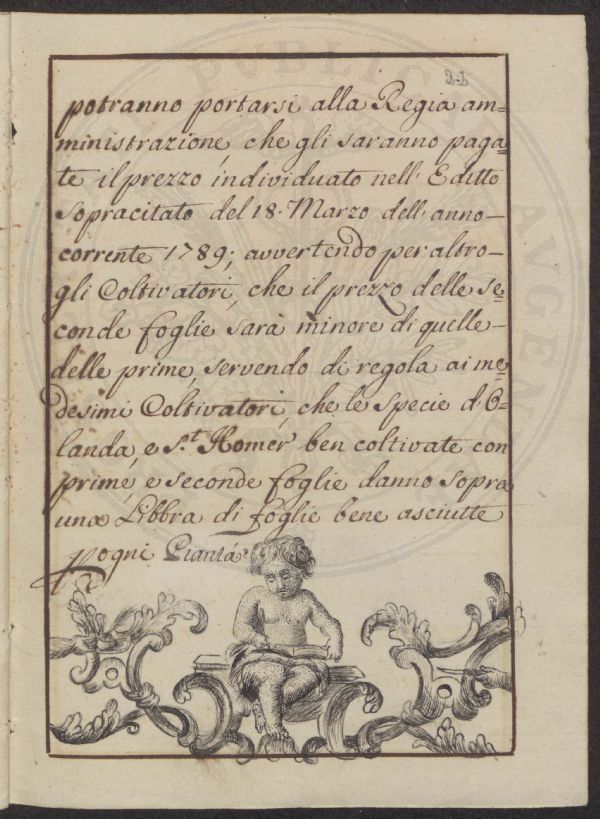 potranno portarsi alla Regia am=
ministrazione, che gli saranno paga=
te il prezzo individuato nell' Editto
sopracitato del 18. Marzo dell' anno–
corrente 1789; avvertendo per altro–
gli Coltivatori, che il prezzo delle se=
conde foglie sarà minore di quelle–
delle prime, servendo di regola ai me=
desimi Coltivatori, che le specie d'O=
landa, e S.t Homer ben coltivate con
prime, e seconde foglie danno sopra
una Libbra di foglie bene asciutte
ogni Pianta.
PUBLICA
AUGENDO